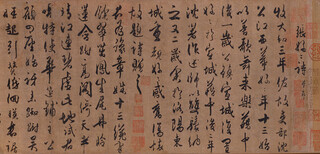 張好好詩并序
牧大和三年佐故吏部沈
公江西幕好好年十三始
以善歌來樂籍中
後一歲公移鎮宣城復置
好好於宣城籍中後二歲
為沈著作述師以雙鬟納
之後二歲於洛陽東
城重覩好好感舊傷懷
故題詩贈之
君為豫章姝十三纔有
餘翠茁鳳生尾丹
蓮含跗高閣倚天半
晴江連碧虛此地試君
唱特使華筵鋪主公
顧四座始訝來踟躕吳
娃起引贊低徊映長裾